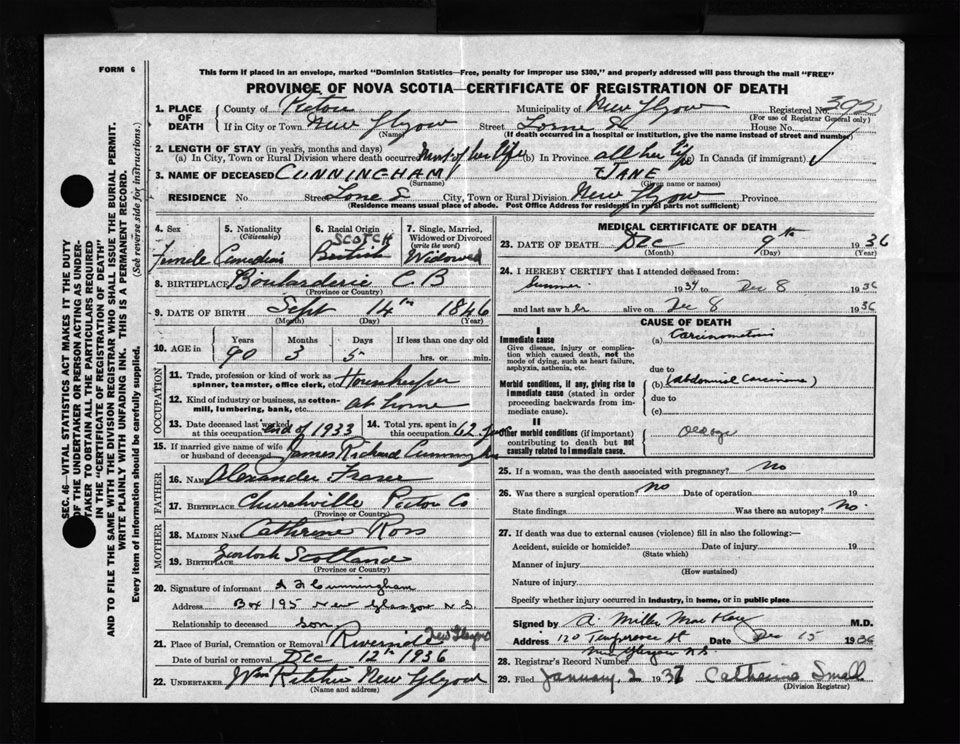 FORM 6
This form if placed in an envelope, marked "Dominion Statistics—Free, penalty for improper use $300," and properly addressed will pass through the mail "FREE"
PROVINCE OF NOVA SCOTIA—CERTIFICATE OF REGISTRATION OF DEATH
1. PLACE OF DEATH County of Pictou Municipality of New Glasgow Registered No.
(For use of Registrar General only)
If in City or Town New Glasgow Street Lorne St House No.
(Name) (If death occurred in a hospital or institution, give the name instead of street and number)
2. LENGTH OF STAY (in years, months and days)
(a) In City, Town or Rural Division where death occurred Most of her life (b) In Province all her life (c) In Canada (if immigrant)
3. NAME OF DECEASED CUNNINGHAM JANE
(Surname) (Given name or names)
RESIDENCE No. Street Lorne St City, Town or Rural Division New Glasgow Province
(Residence means usual place of abode. Post Office Address for residents in rural parts not sufficient)
4. Sex Female
5. Nationality (Citizenship) Canadian
6. Racial Origin SCOTCH British
7. Single, Married, Widowed or Divorced (write the word) Widowed
8. BIRTHPLACE Boularderie C B
(Province or Country)
9. DATE OF BIRTH Sept 14th 1846
(Month) (Day) (Year)
10. AGE in Years Months Days If less than one day old
90 3 5 hrs. or min.
OCCUPATION
11. Trade, profession or kind of work as spinner, teamster, office clerk, etc. Housekeeper
12. Kind of industry or business, as cotton-mill, lumbering, bank, etc. at home
13. Date deceased last worked at this occupation end of 1933
14. Total yrs. spent in this occupation 62 years
15. If married give name of wife or husband of deceased James Richard Cunningham
FATHER
16. NAME Alexander Fraser
17. BIRTHPLACE Churchville Pictou Co
(Province or Country)
MOTHER
18. MAIDEN NAME Catherine Ross
19. BIRTHPLACE Scotland
(Province or Country)
20. Signature of informant Cunningham
Address Box 195 New Glasgow N.S.
Relationship to deceased son
21. Place of Burial, Cremation or Removal Riverside New Glasgow
Date of burial or removal Dec 12th 1936
22. UNDERTAKER Wm Ritchie New Glasgow
(Name and address)
MEDICAL CERTIFICATE OF DEATH
23. DATE OF DEATH Dec 9th 1936
(Month) (Day) (Year)
24. I HEREBY CERTIFY that I attended deceased from:
Summer 1934 to Dec 8 1936
and last saw her alive on Dec 8 1936
CAUSE OF DEATH
I
Immediate cause
Give disease, injury or complication which caused death, not the mode of dying, such as heart failure, asphyxia, asthenia, etc.
(a) Carcinomatosis
due to
Morbid conditions, if any, giving rise to immediate cause (stated in order proceeding backwards from immediate cause).
(b) (abdominal Carcinoma)
due to
(c)
II
Other morbid conditions (if important) contributing to death but not causally related to immediate cause.
old age
25. If a woman, was the death associated with pregnancy? no
26. Was there a surgical operation? no Date of operation 19
State findings Was there an autopsy? no.
27. If death was due to external causes (violence) fill in also the following:—
Accident, suicide or homicide? Date of injury 19
(State which)
Manner of injury
(How sustained)
Nature of injury
Specify whether injury occurred in industry, in home, or in public place
Signed by A. Miller MacKay M.D.
Address 120 Temperance St Date Dec 15 1936
New Glasgow N.S.
28. Registrar's Record Number
29. Filed January 2 1937 Catherine Small
(Division Registrar)
SEC. 46—VITAL STATISTICS ACT MAKES IT THE DUTY
OF THE UNDERTAKER OR PERSON ACTING AS UNDERTAKER TO OBTAIN ALL THE PARTICULARS REQUIRED
IN THE "CERTIFICATE OF REGISTRATION OF DEATH"
AND TO FILE THE SAME WITH THE DIVISION REGISTRAR WHO SHALL ISSUE THE BURIAL PERMIT.
WRITE PLAINLY WITH UNFADING INK. THIS IS A PERMANENT RECORD.
Every item of information should be carefully supplied. (See reverse side for instructions.)